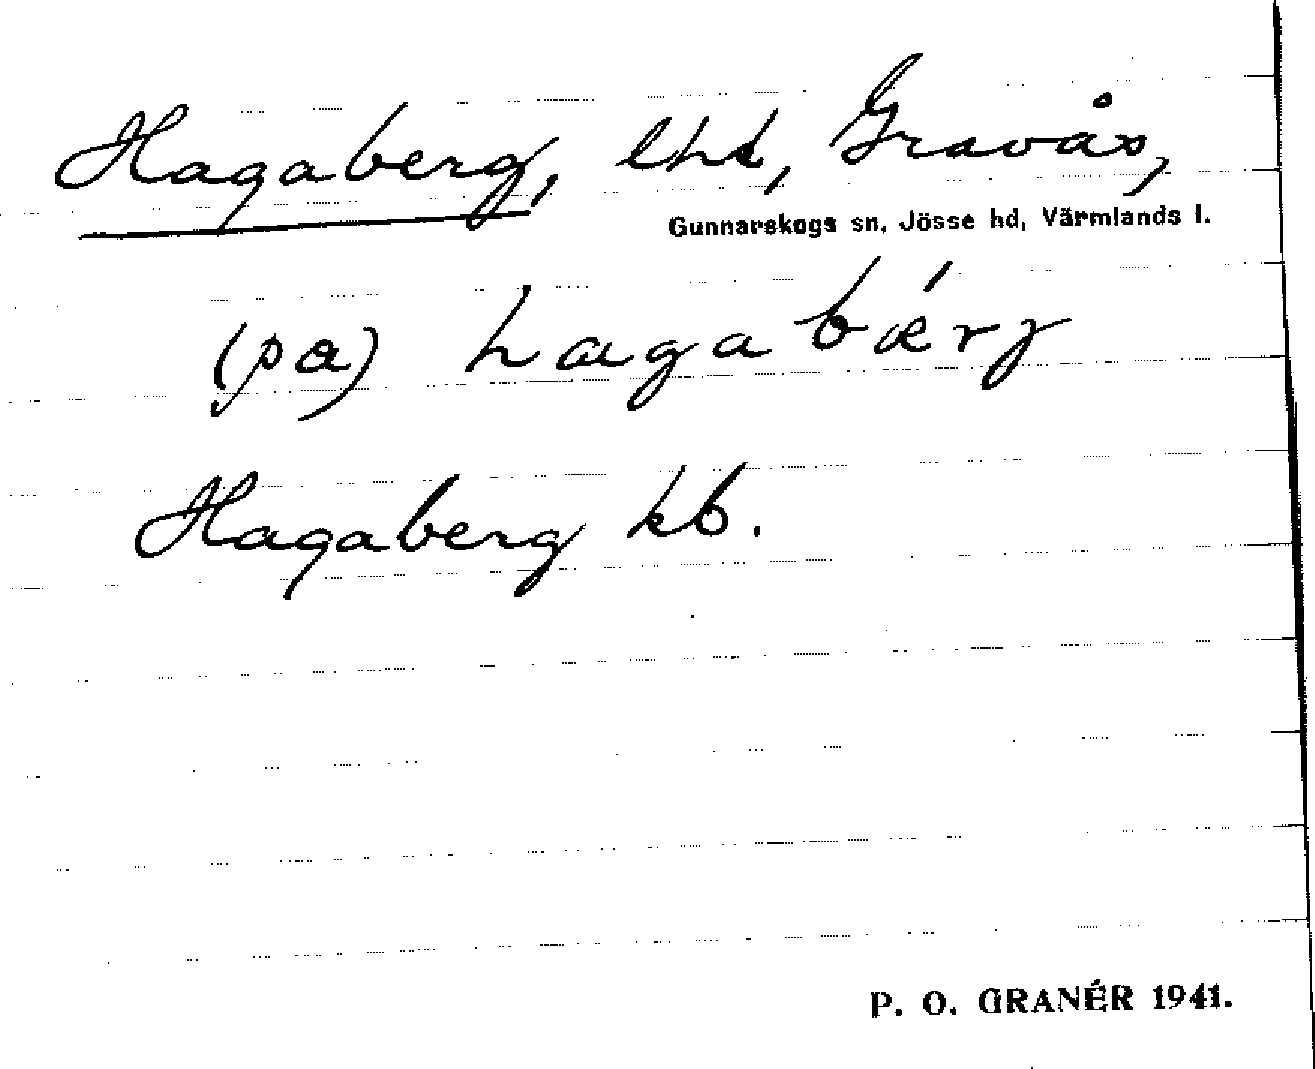 Hagaberg, lht, Gravås,
Gunnarskogs sn, Jösse hd, Värmlands l.
(pa) hagabǽrj
Hagaberg kb.
P. O. GRANÉR 1941.